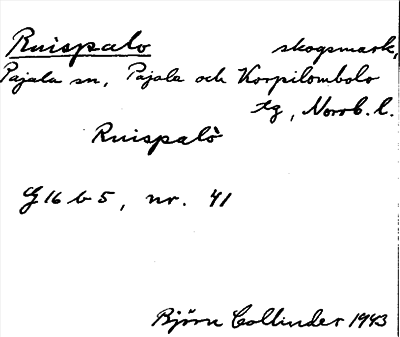 Ruispalo skogsmark,
Pajala sn, Pajala och Korpilombolo
tg, Norrb. l.
Ruispalò
G 16 b 5, nr. 41
Björn Collinder 1943